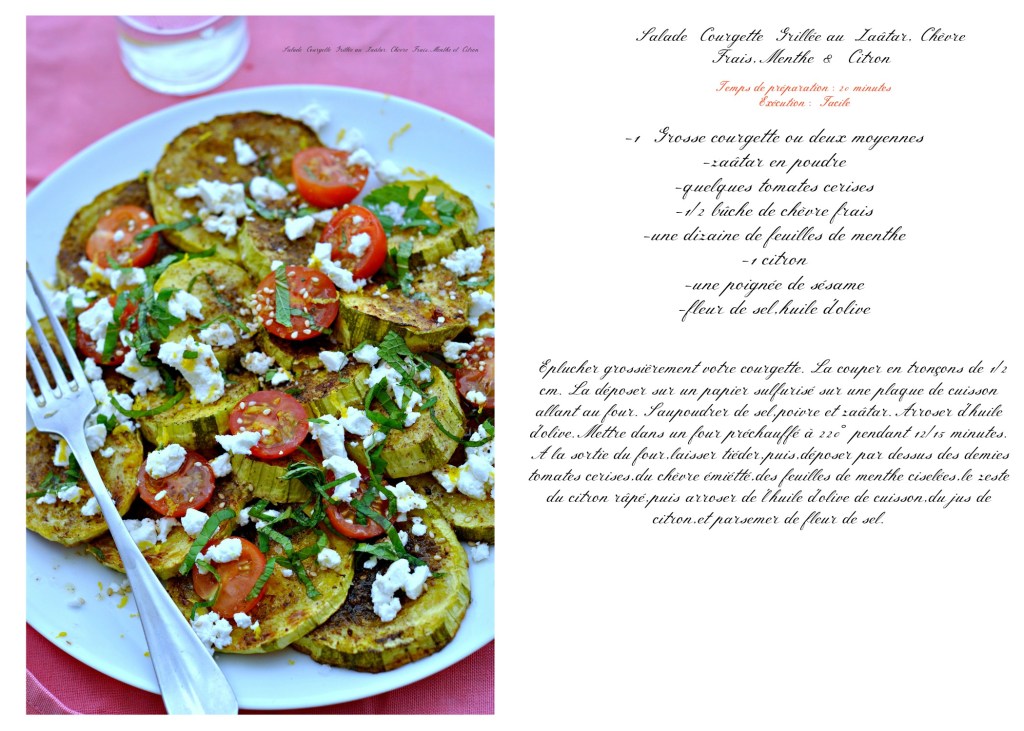 Salade Courgette Grillée au Zaâtar, Chèvre Frais, Menthe et Citron
Salade Courgette Grillée au Zaâtar, Chèvre
Frais, Menthe & Citron
Temps de préparation : 20 minutes
Exécution : Facile
-1 Grosse courgette ou deux moyennes
-zaâtar en poudre
-quelques tomates cerises
-1/2 bûche de chèvre frais
-une dizaine de feuilles de menthe
-1 citron
-une poignée de sésame
-fleur de sel,huile d'olive
Eplucher grossièrement votre courgette. La couper en tronçons de 1/2
cm. La déposer sur un papier sulfurisé sur une plaque de cuisson
allant au four. Saupoudrer de sel,poivre et zaâtar. Arroser d'huile
d'olive.Mettre dans un four préchauffé à 220° pendant 12/15 minutes.
A la sortie du four,laisser tiéder,puis,déposer par dessus des demies
tomates cerises,du chèvre émiétté,des feuilles de menthe ciselées,le zeste
du citron râpé,puis arroser de l'huile d'olive de cuisson,du jus de
citron,et parsemer de fleur de sel.